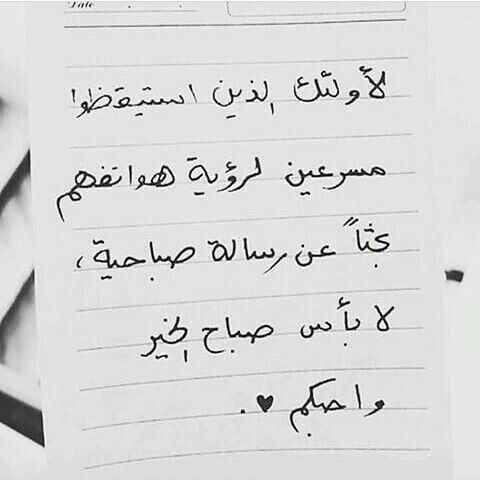 Date
لأولئك الذين استيقظوا
مسرعين لرؤية هواتفهم
بحثاً عن رسالة صباحية،
لا بأس صباح الخير
واحبكم ♥.